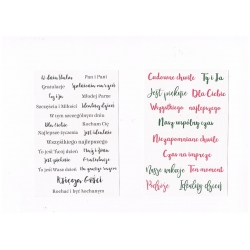 W dniu Ślubu Pan i Pani
Gratulacje Spełnienia marzeń
Ty i Ja Młodej Parze
Szczęścia i Miłości Idealny dzień
W tym szczególnym dniu
Dla Ciebie Kocham Cię
Najlepsze życzenia Jest idealnie
Wszystkiego najlepszego
To jest Twój dzień Mąż i Żona
Jest pięknie Gratulacje
To Twój dzień
Księga Gości
Kochać i być kochanym
Cudowne chwile Ty i Ja
Jest pięknie Dla Ciebie
Wszystkiego najlepszego
Nasz wspólny czas
Niezapomniane chwile
Czas na imprezę
Nasze wakacje Ten moment
Podróże Idealny dzień